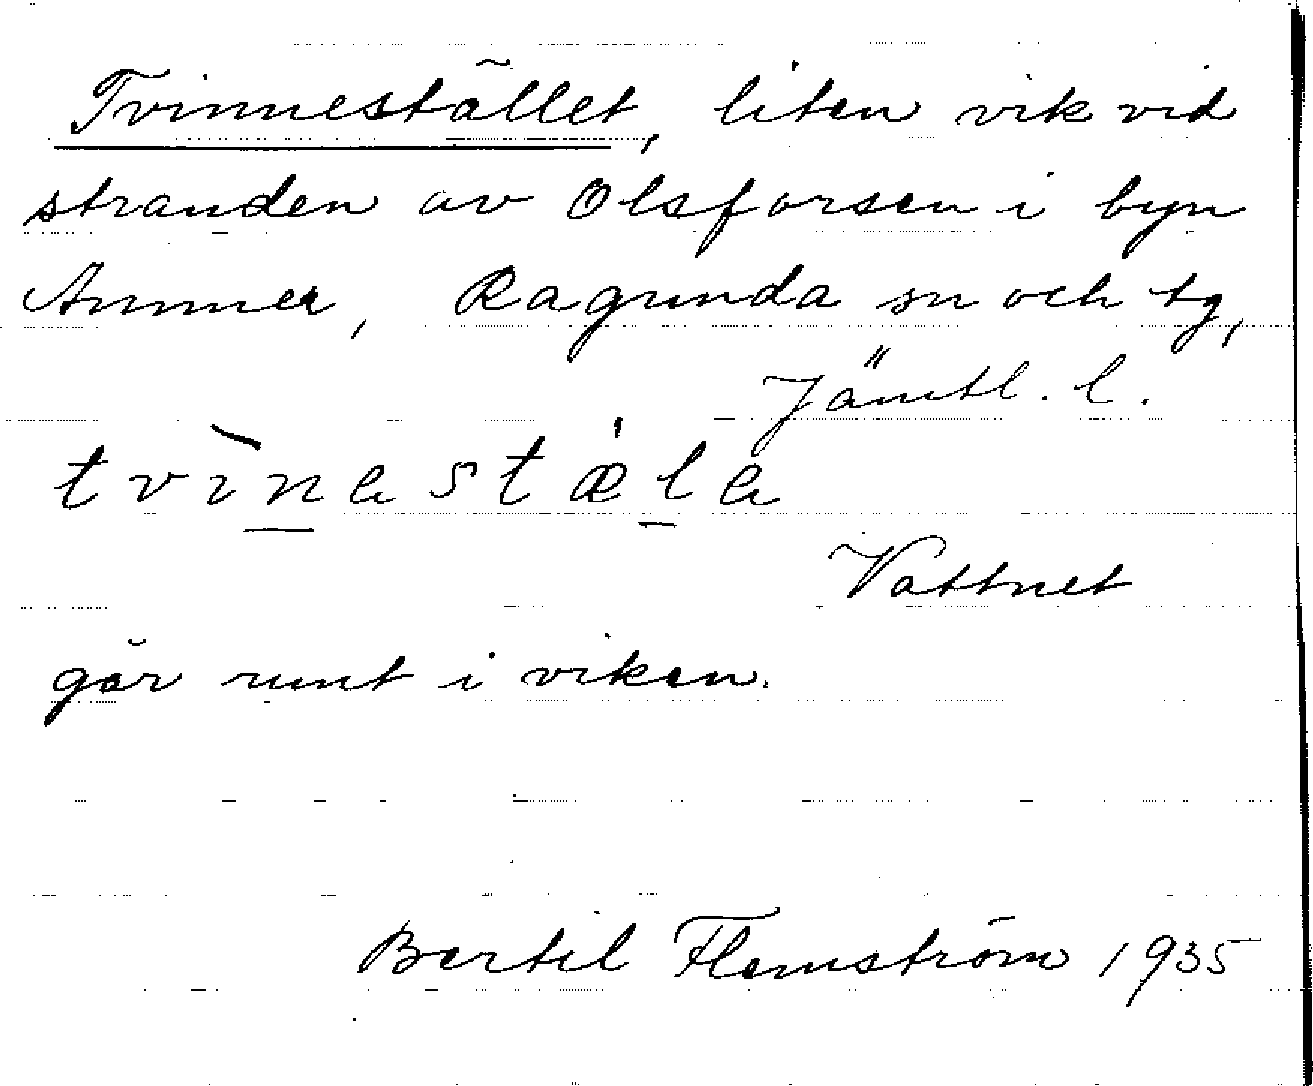 Tvinnestället, liten vik vid
stranden av Olsforsen i byn
Ammer, Ragunda sn och tg,
Jämtl. l.
tvìnestæ̍le
Vattnet
går runt i viken.
Bertil Flemström 1935